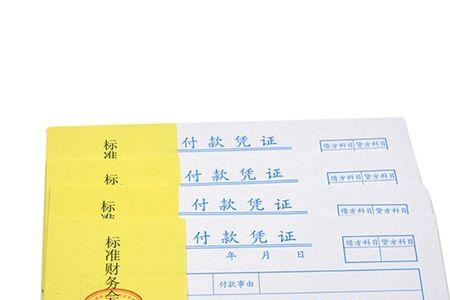 标准
付款凭证
年 月 日
借方科目 贷方科目
标
付款凭证
借方科目 贷方科目
标准
付款凭证
借方科目 贷方科目
标准财务会
付款凭证
年 月 日
借方科目 贷方科目
付款事由